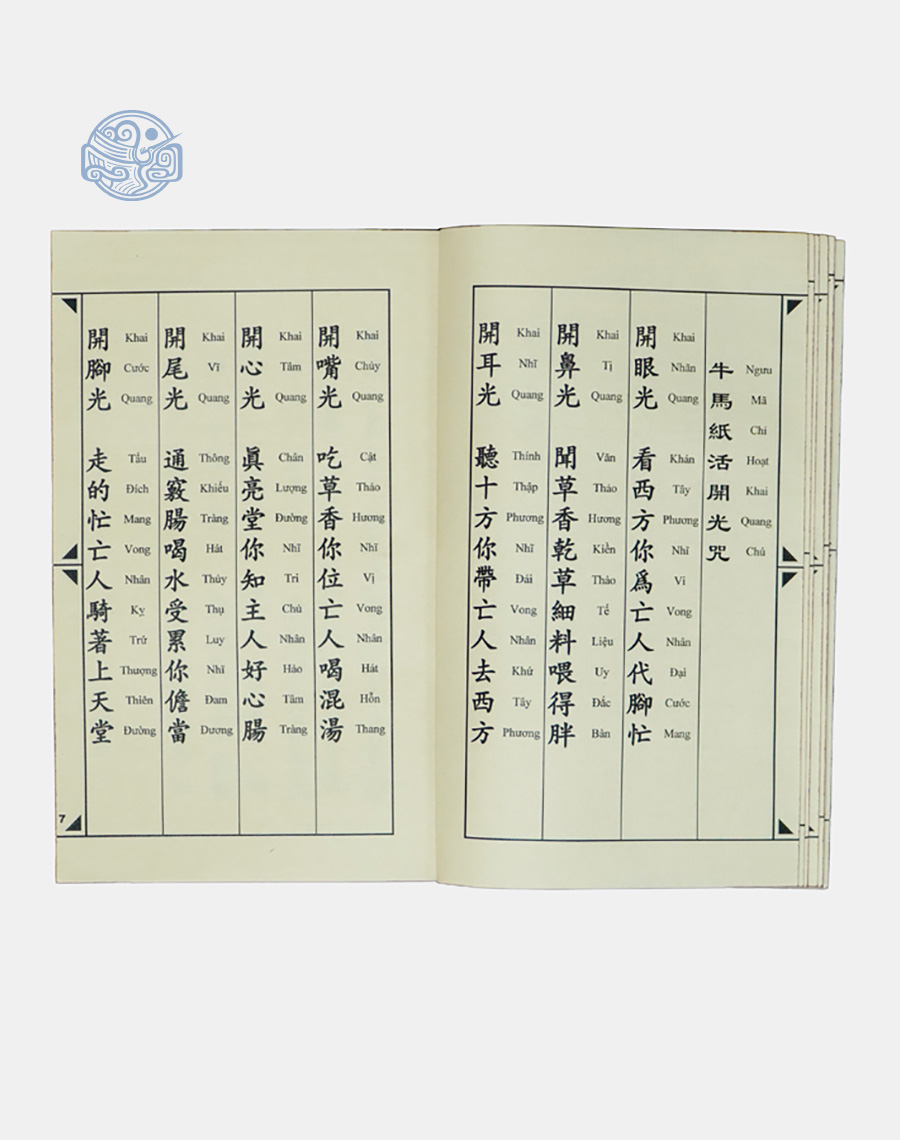 牛馬紙活開光咒
Ngưu Mã Chỉ Hoạt Khai Quang Chú
開眼光 看西方你爲亡人代腳忙
Khai Nhãn Quang Khán Tây Phương Nhĩ Vi Vong Nhân Đại Cước Mang
開鼻光 聞草香乾草細料喂得胖
Khai Tị Quang Văn Thảo Hương Kiền Thảo Tế Liệu Uy Đắc Bàn
開耳光 聽十方你帶亡人去西方
Khai Nhĩ Quang Thính Thập Phương Nhĩ Đái Vong Nhân Khứ Tây Phương
開嘴光 吃草香你位亡人喝混湯
Khai Chủy Quang Cật Thảo Hương Nhĩ Vị Vong Nhân Hát Hỗn Thang
開心光 眞亮堂你知主人好心腸
Khai Tâm Quang Chân Lượng Đường Nhĩ Tri Chủ Nhân Hảo Tâm Tràng
開尾光 通竅腸喝水受累你儋當
Khai Vĩ Quang Thông Khiếu Tràng Hát Thủy Thụ Luy Nhĩ Đam Dương
開腳光 走的忙亡人騎著上天堂
Khai Cước Quang Tẩu Đích Mang Vong Nhân Kỵ Trứ Thượng Thiên Đường
7